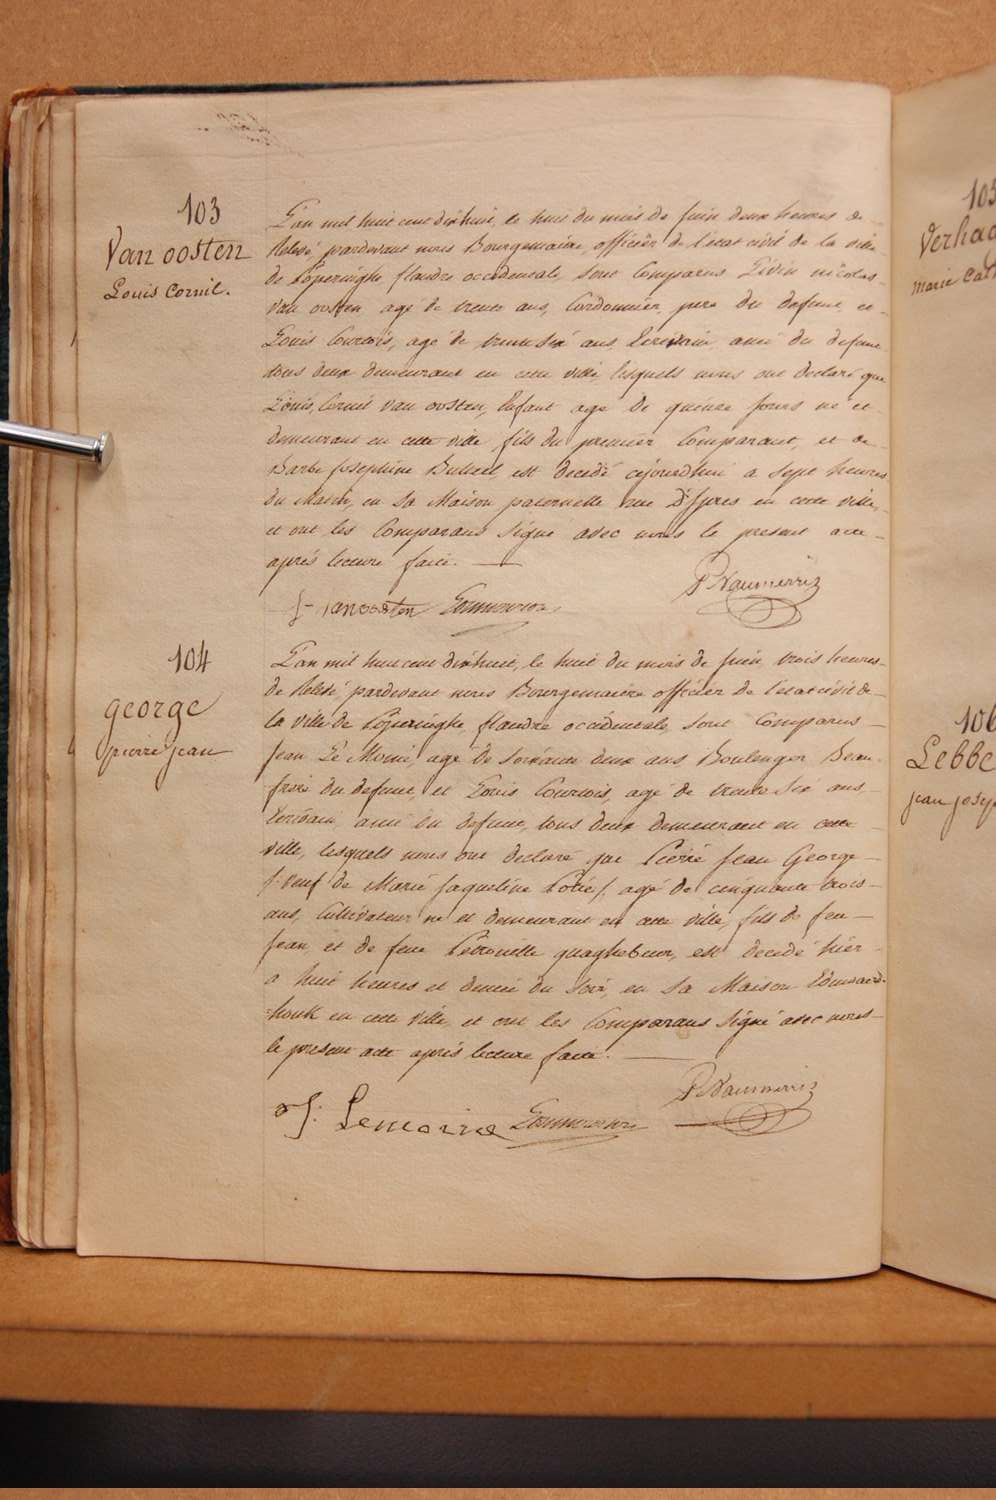 103
Van oosten
Louis Cornil.
L'an mil huit cent dixhuit, le huit du mois de Juin deux heures de
Relevé, pardevant nous Bourgemaire, officier de l'état civil de la ville
de Poperinghe flandre occidentale, sont Comparus Livin nicolas
van oosten agé de trente ans, Cordonnier, pere du defunt, et
Louis Courtois, agé de trente six ans Ecrivain, ami du defunt
tous deux demeurant en cette ville, lesquels nous ont declaré que
Louis, Cornil van oosten, Enfant agé de quinze jours né et
demeurant en cette ville, fils du premier Comparant, et de
Barbe Josephine, est decedé cejourdhui a sept heures
du Matin, en sa Maison paternelle rue D'Ypres en cette ville,
et ont les Comparans signé avec nous le present acte
aprés lecture faite.
Vanoosten
104
george
pierre jean
L'an mil huit cent dixhuit, le huit du mois de Juin, trois heures
de Relevé, pardevant nous Bourgemaire officier de l'état civil de
la ville de Poperinghe, flandre occidentale, sont Comparus
Jean Le Moine, agé de soixante deux ans Boulenger Beau
frere du defunt, et Louis Courtois, agé de trente six ans
Ecrivain, ami du defunt, tous deux demeurant en cette
ville, lesquels nous ont declaré que Pierre Jean George
/: Veuf de Marie Jaqueline Potie /, agé de cinquante trois
ans, Cultivateur né et demeurant en cette ville, fils de feu
Jean, et de feue Petronille quaghebeur, est decedé hier
a huit heures et demie du soir, en sa Maison Edewaerd
houk en cette ville, et ont les Comparans signé avec nous
le present acte aprés lecture faite.
J: Lemoine
105
Verhae
marie Cath
106
Lebbe
jean josep